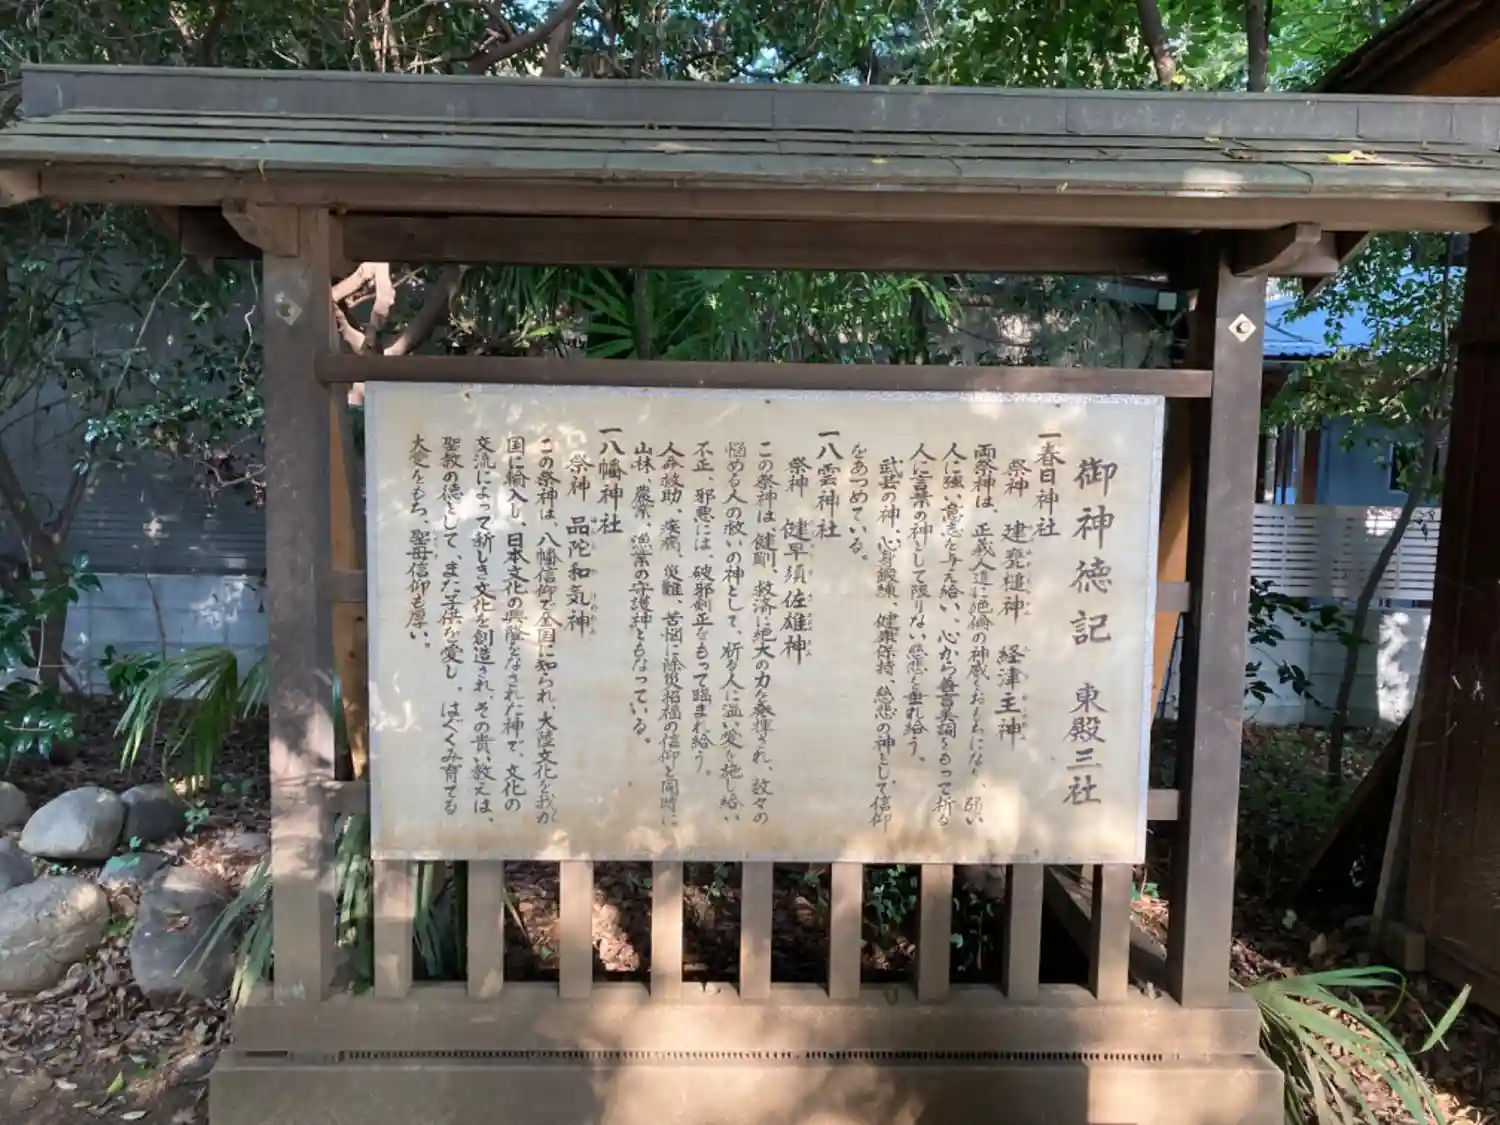 御神徳記 東殿三社
一春日神社
祭神 建甕槌神 経津主神
両祭神は、正義人道に絶倫の神威をおもちになり、弱い
人に強い意志を与え給い、心から善言美詞をもって祈る
人に言葉の神として限りない慈悲を垂れ給う。
武甚の神、心身鍛練、健康保持、慈悲の神として信仰
をあつめている。
一八雲神社
祭神 健早須佐雄神
この祭神は、健剛、救済に絶大の力を発揮され、数々の
悩める人の救いの神として、祈る人に温い愛を施し給い
不正、邪悪には、破邪剣正をもって臨まれ給う。
人命救助、疾病、災難、苦悩に除災招福の信仰と同時に
山林、農業、漁業の守護神ともなっている。
一八幡神社
祭神 品陀和気神
この祭神は、八幡信仰で全国に知られ、大陸文化を我が
国に輸入し、日本文化の興隆をなされた神で、文化の
交流によって新しき文化を創造され、その貴い教えは、
聖教の徳として、また子供を愛し、はぐくみ育てる
大愛をもち、聖母信仰も厚い。